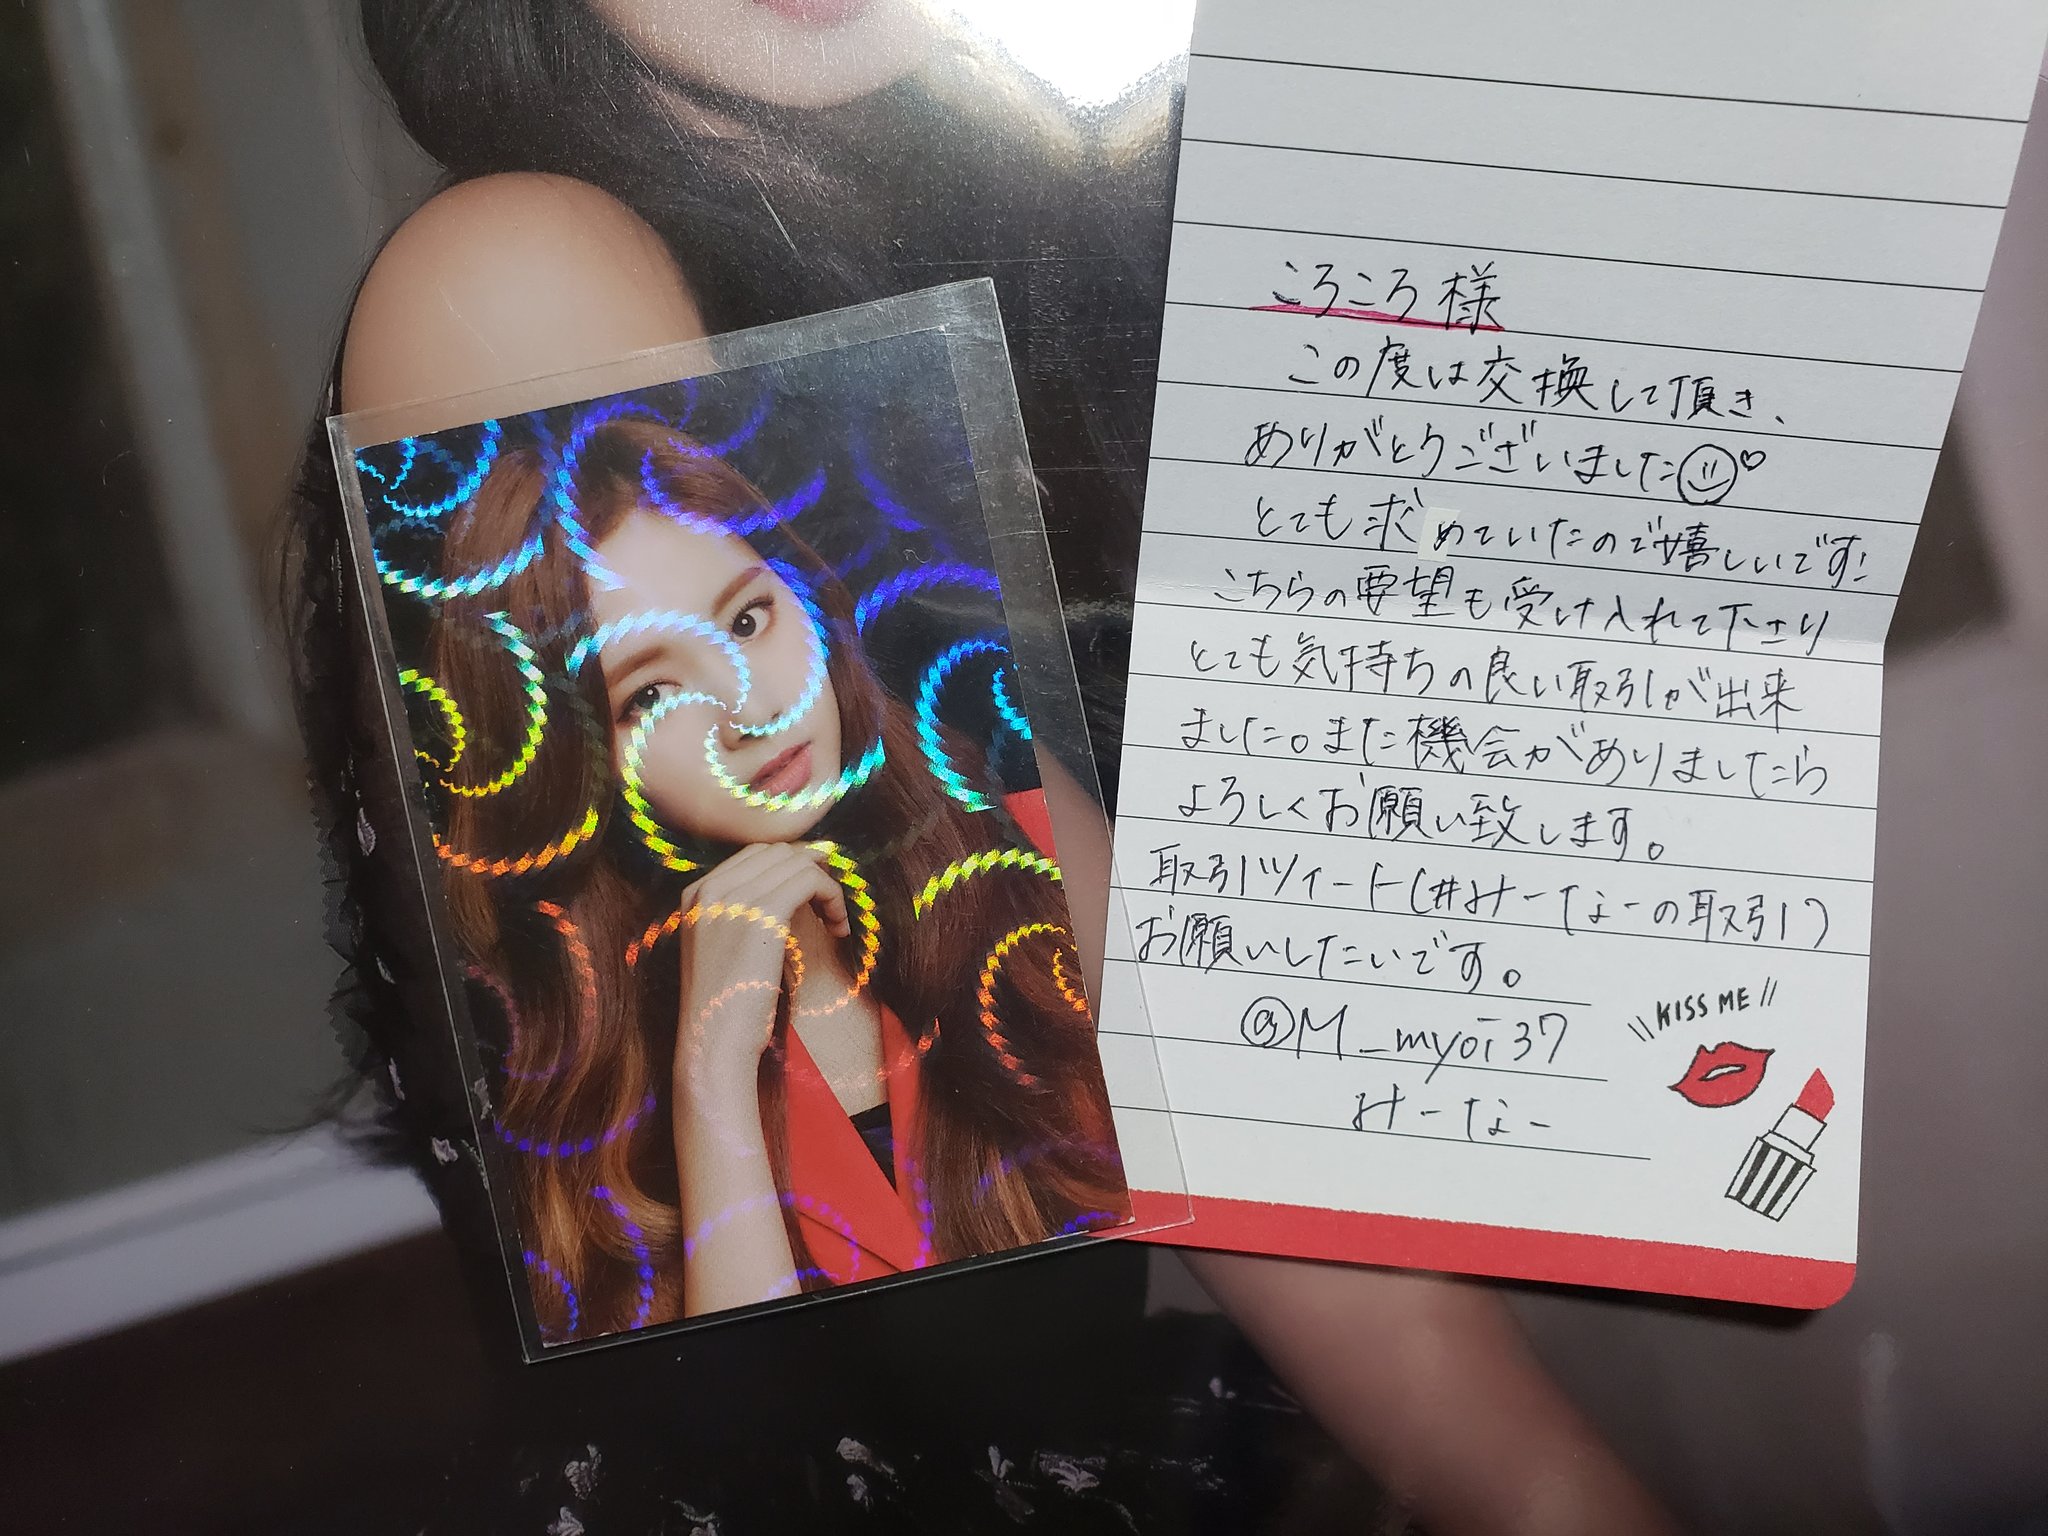 ころころ様
この度は交換して頂き、
ありがとうございました
とても求めていたので嬉しいです!
こちらの要望も受け入れて下さり
とても気持ちの良い取引が出来
ました。また機会がありましたら
よろしくお願い致します。
取引ツイート(#みーなーの取引)
お願いしたいです。
@M_myoi37
みーなー
KISS ME